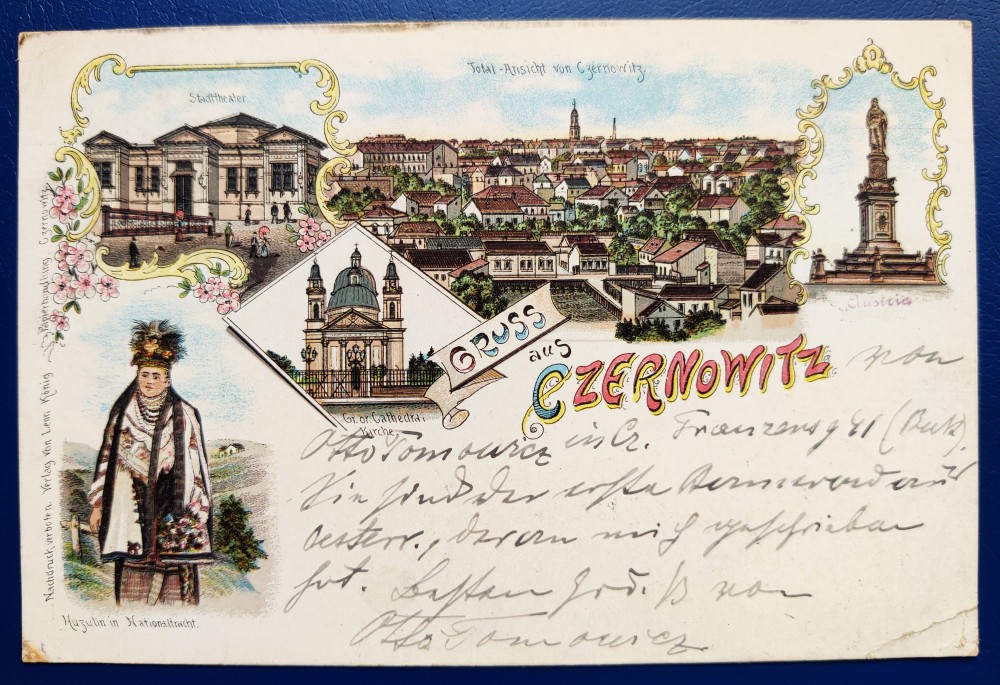 Stadttheater.
Total-Ansicht von Czernowitz.
Austria
Gr. or. Cathedral
Kirche.
GRUSS
aus
CZERNOWITZ
Huzulin in Nationaltracht.
Nachdruck verboten. Verlag von Leon König Papierhandlung Czernowitz
von
Otto Tomowicz in Cz. Franzensg 41 (Buk).
Sie sind der erste
oesterr., der an mich geschrieben
hat. Besten Gruß von
Otto Tomowicz